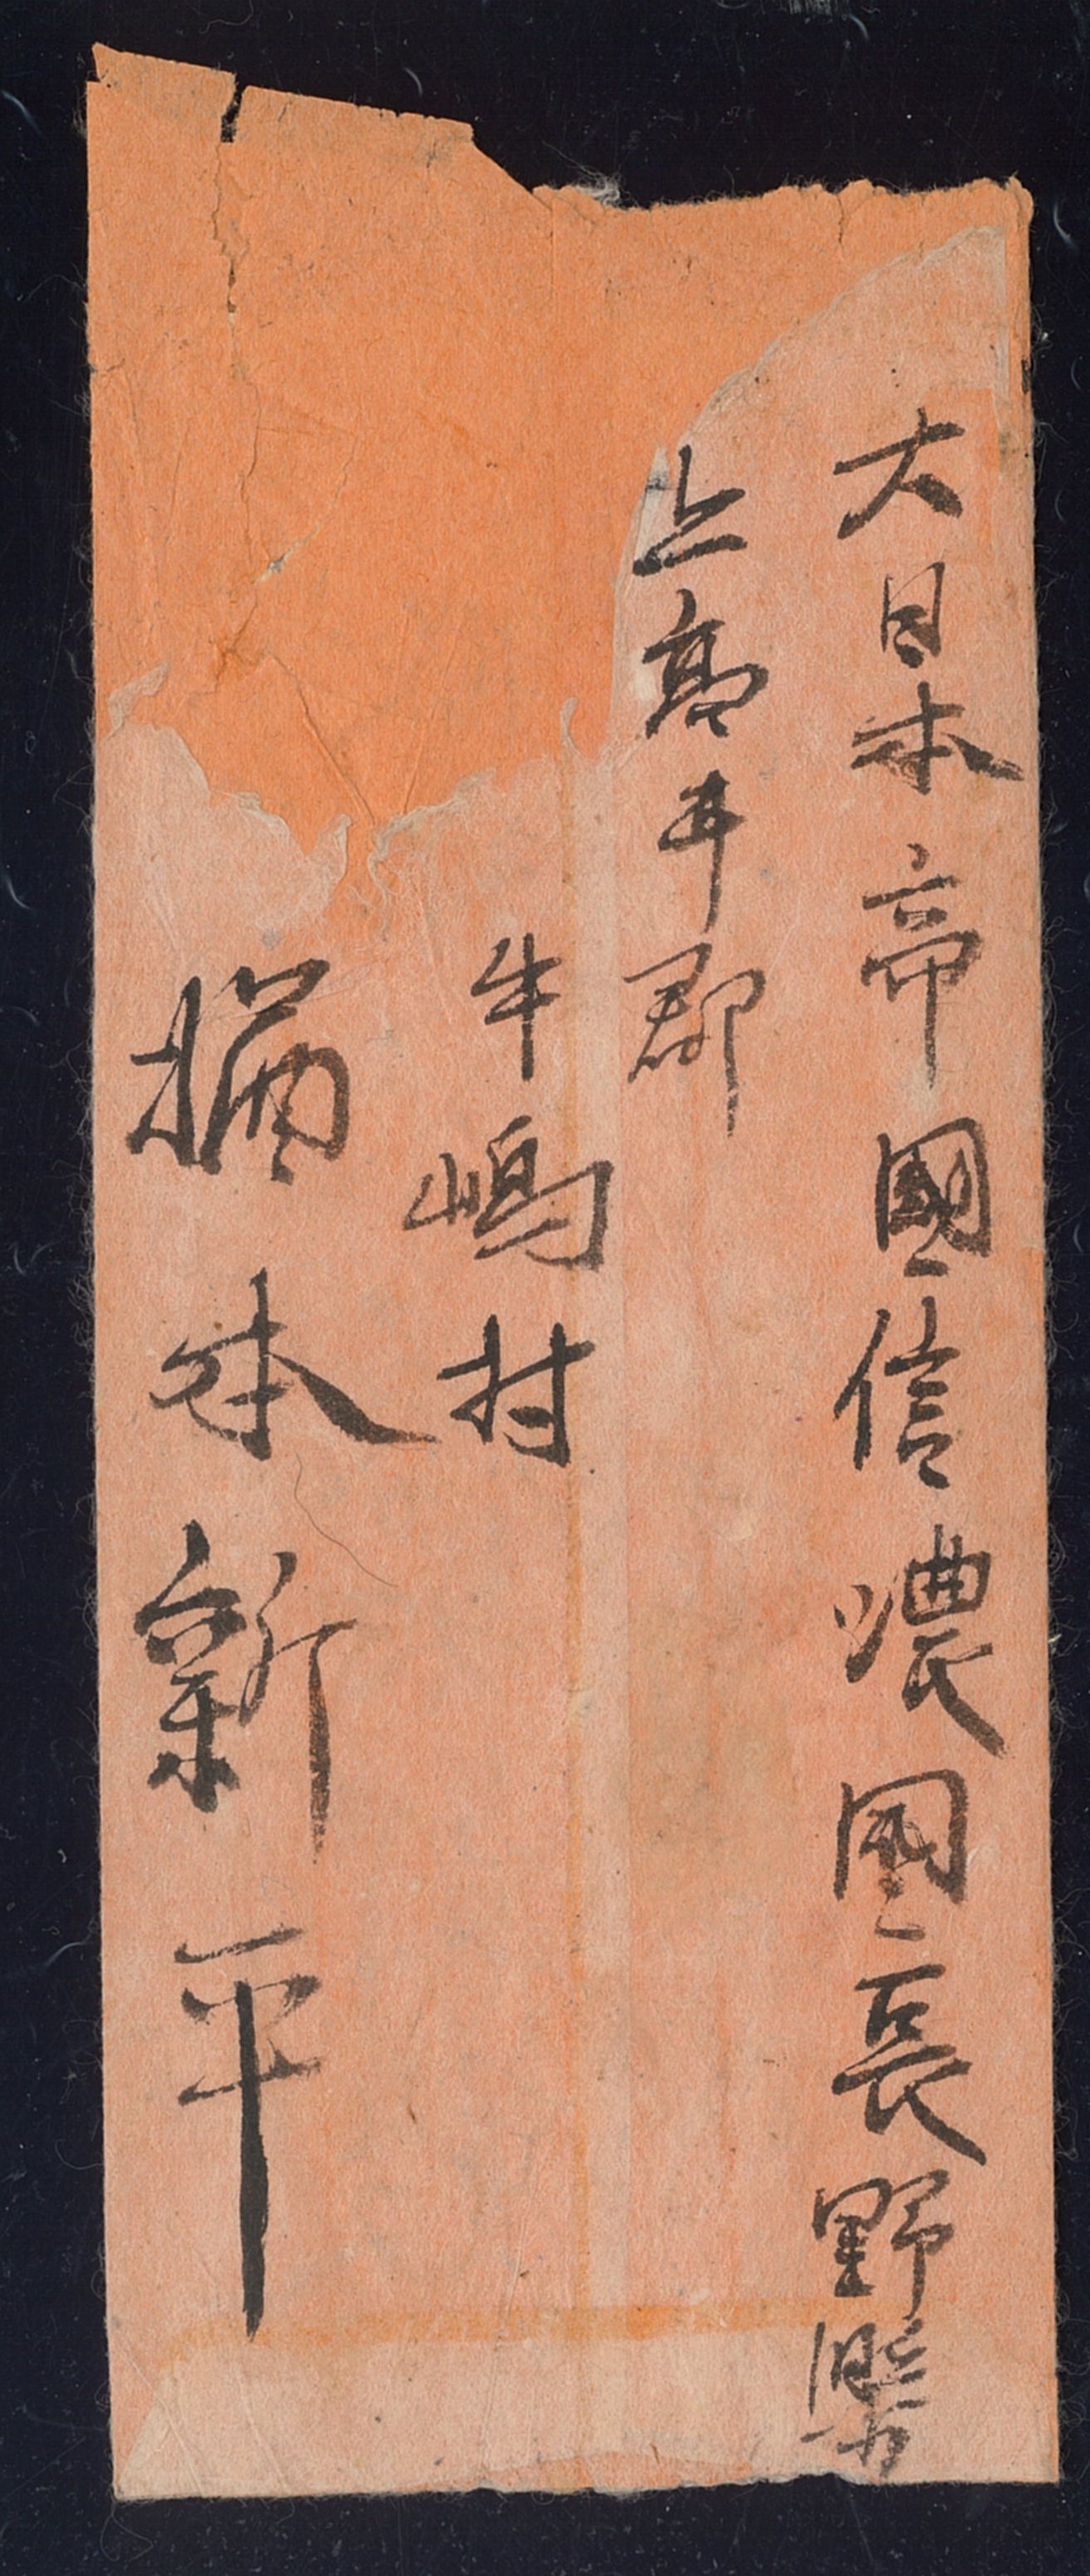 大日本帝國信濃國長野縣
上高井郡
牛嶋村
橋本新平